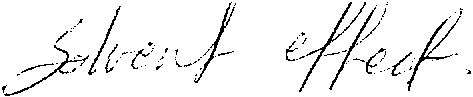 Solvent effect.